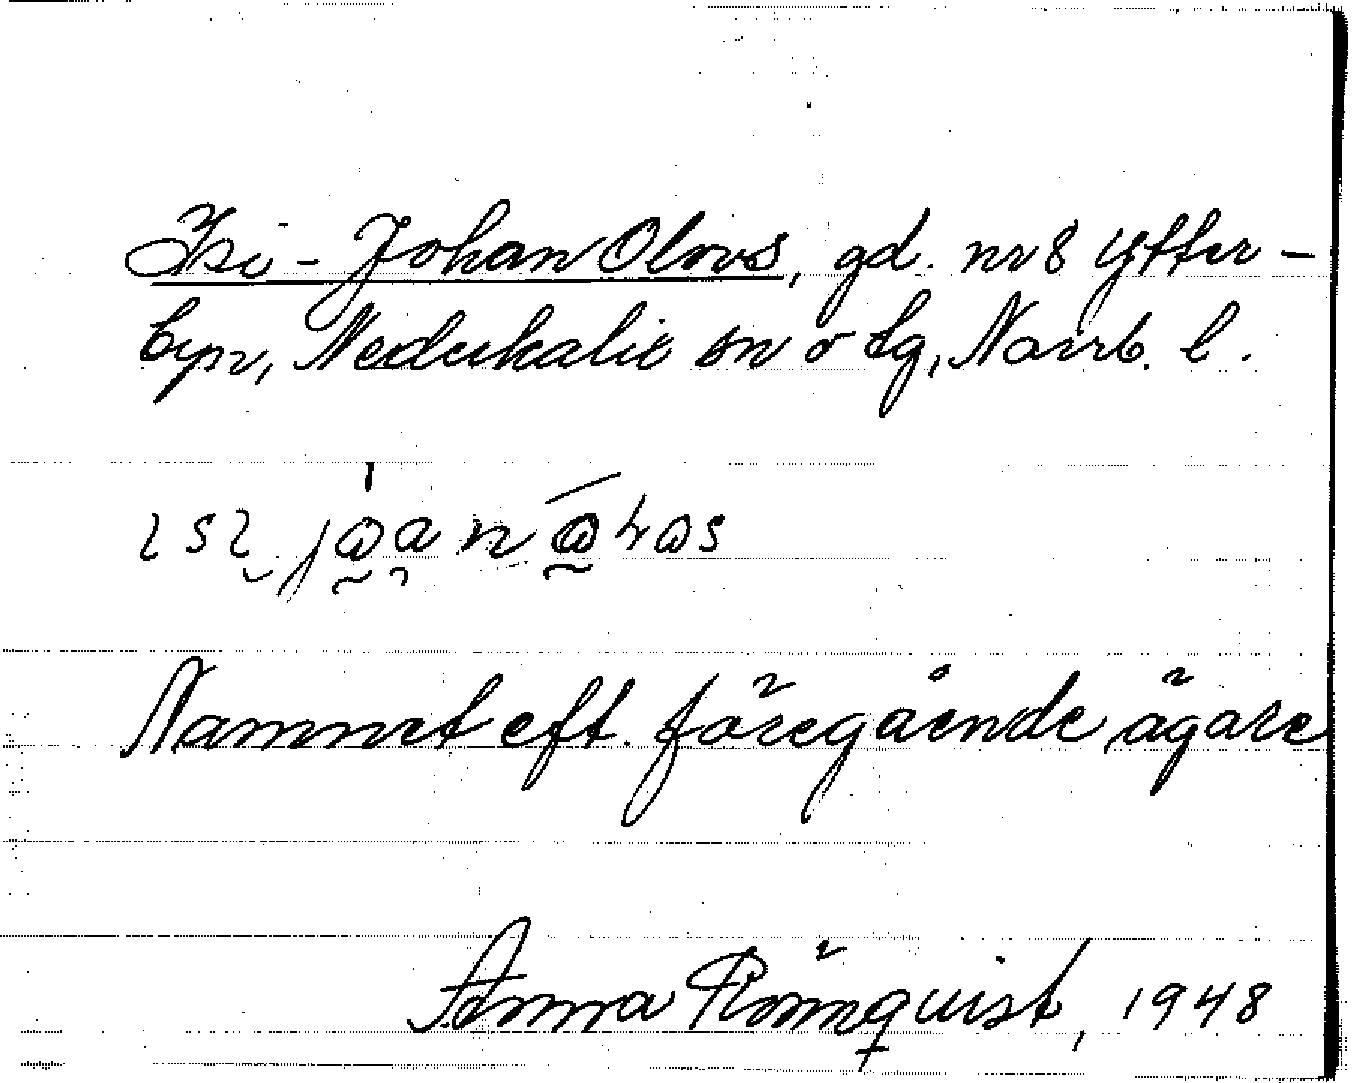 Isi-Johan Olovs, gd. nr 8 Ytter-
byn, Nederkalix sn o tg, Norrb. l.
Namnet eft. föregående ägare
Anna Römquist, 1948